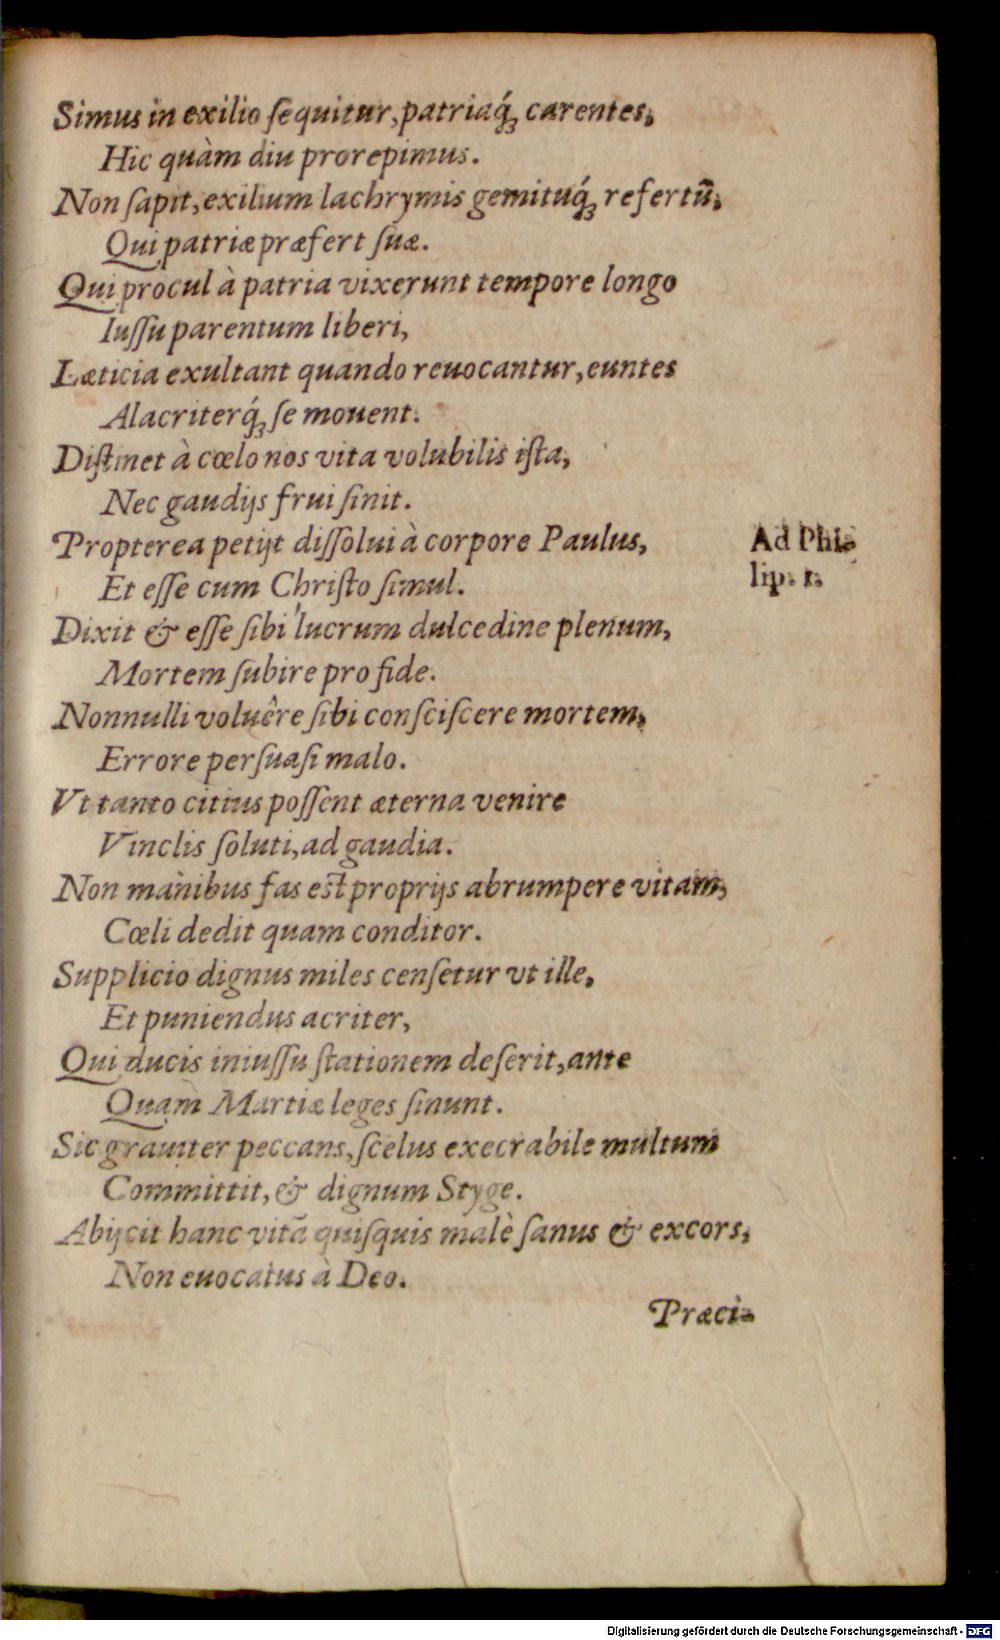 Simus in exilio ſequitur, patriaq́ꝫ carentes,
Hic quàm diu prorepimus.
Non ſapit, exilium lachrymis gemituq́ꝫ refertū,
Qui patriæ præfert ſuæ.
Qui procul à patria vixerunt tempore longo
Iuſſu parentum liberi,
Læticia exultant quando reuocantur, euntes
Alacriterq́ꝫ ſe mouent.
Diſtinet à cœlo nos vita volubilis iſta,
Nec gaudijs frui ſinit.
Propterea petijt diſſolui à corpore Paulus,
Ad Phi-
Et eſſe cum Chriſto ſimul.
lip. 1.
Dixit & eſſe ſibi lucrum dulcedine plenum,
Mortem ſubire pro fide.
Nonnulli voluêre ſibi conſciſcere mortem,
Errore perſuaſi malo.
Vt tanto citius poſſent æterna venire
Vinclis ſoluti, ad gaudia.
Non manibus fas eſt proprijs abrumpere vitam,
Cœli dedit quam conditor.
Supplicio dignus miles cenſetur vt ille,
Et puniendus acriter,
Qui ducis iniuſſu ſtationem deſerit, ante
Quam Martiæ leges ſinunt.
Sic grauiter peccans, ſcelus execrabile multum
Committit, & dignum Styge.
Abijcit hanc vitā quiſquis malè ſanus & excors,
Non euocatus à Deo.
Præci-
Digitalisierung gefördert durch die Deutsche Forschungsgemeinschaft - DFG